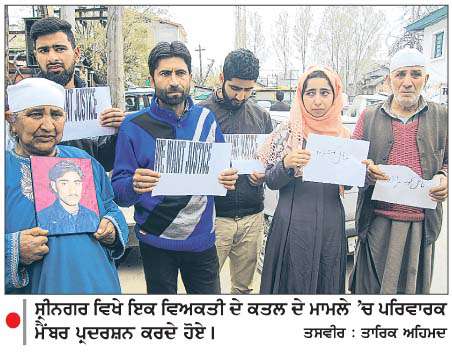 WE WANT JUSTICE
WE WANT JUSTICE
ਸ੍ਰੀਨਗਰ ਵਿਖੇ ਇਕ ਵਿਅਕਤੀ ਦੇ ਕਤਲ ਦੇ ਮਾਮਲੇ 'ਚ ਪਰਿਵਾਰਕ
ਮੈਂਬਰ ਪ੍ਰਦਰਸ਼ਨ ਕਰਦੇ ਹੋਏ। ਤਸਵੀਰ : ਤਾਰਿਕ ਅਹਿਮਦ